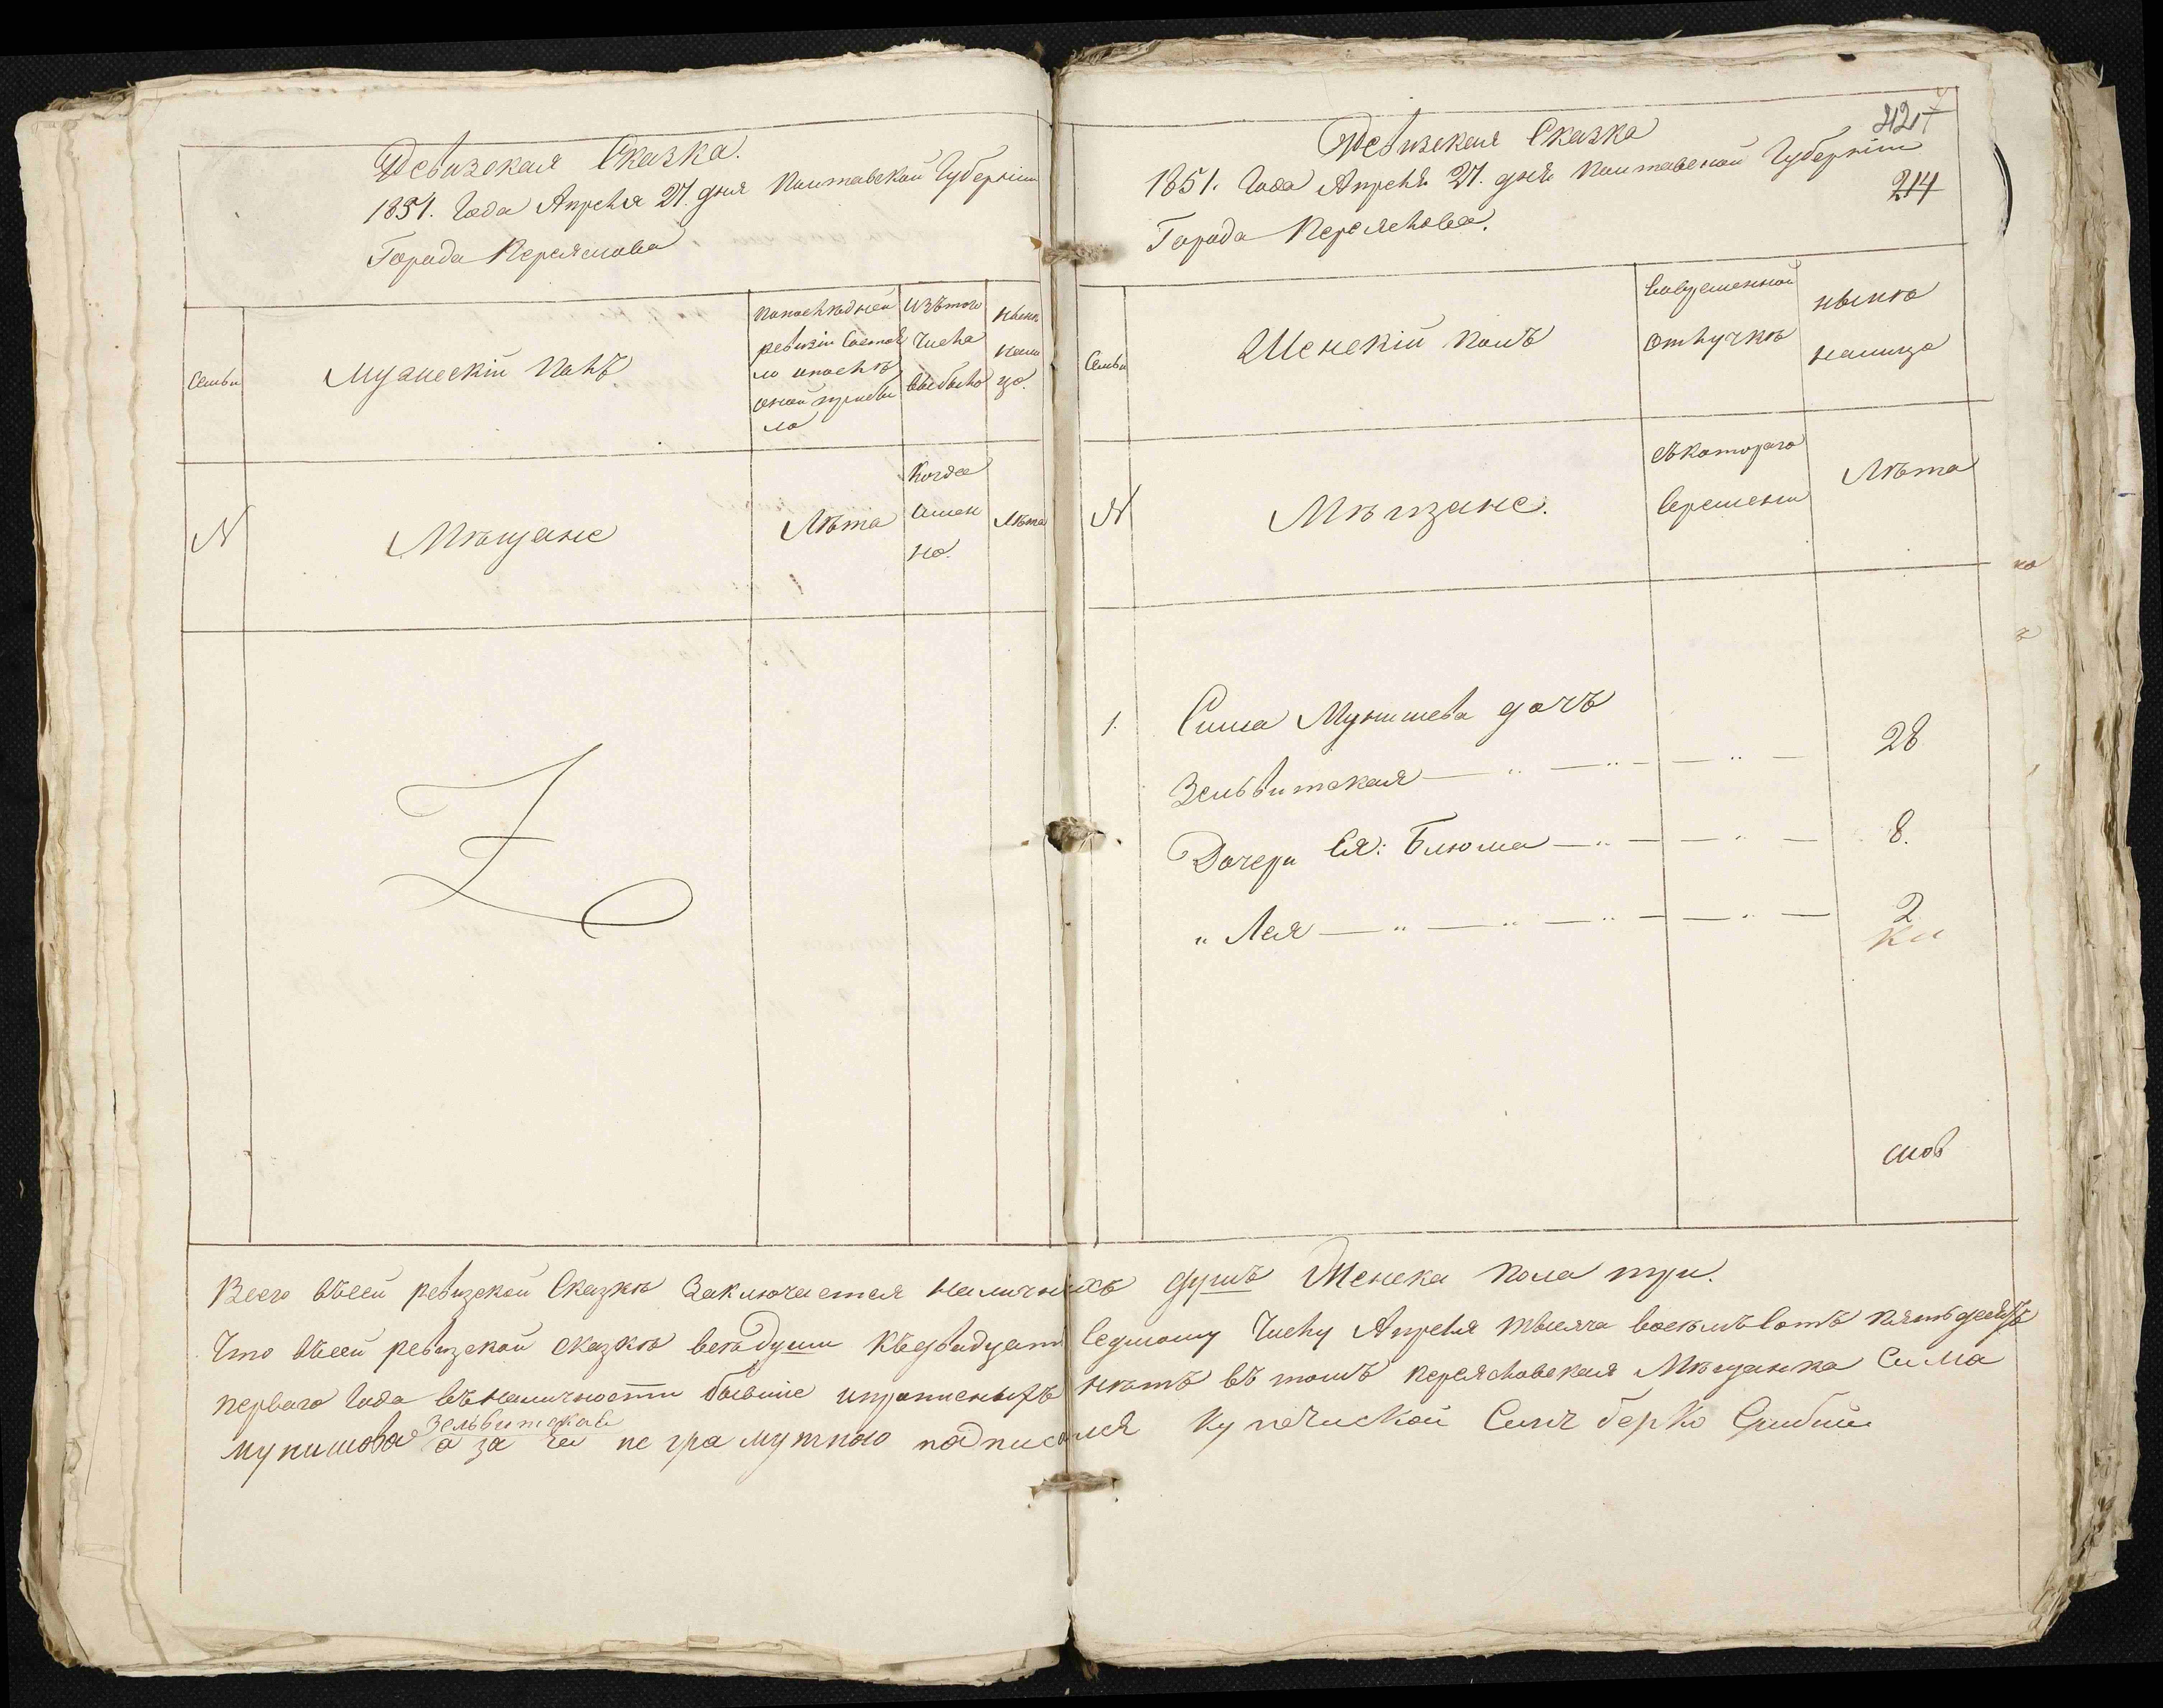 Ревизская Сказка.
1851. Года Апреля 27. дня Полтавской Губернии
Города Переяслова
Семьи
Мужескій полъ
По последней
ревизіи Состоя
ло и после
оной прибы
ло
Изъ того
Числа
выбыло
ныне
нали
цо.
N
Мѣщане
Лѣта
Когда
имен
но.
Лѣта
Ревизская Сказка
1851. Года Апреля 27. дня Полтавской Губерніи
Города Переяслова.
214
Семьи
Женскій полъ
Вовременной
отлучкѣ
ныне
налицо
N
Мѣщане.
Съ котораго
времени
Лѣта
1. Сима Мунишева дочь
Зельвитская — „ — „ — — „ — 28
Дочери Ея: Блюма — „ — — „ — 8.
„ Лея — „ — „ — „ — — „ — 2
Всего въ сей ревизской Сказкѣ Заключается наличныхъ душъ Женска пола три.
Что въ сей ревизской сказкѣ всѣ души къ двадцать Седмому Числу Апреля тысяча восемъ сотъ пятьдесятъ
перваго Года въ наличности бывшіе и прописныхъ нѣтъ въ томъ переясловская Мѣщанка Сима
Зельвитская
Мунишова а за ея не грамутною подписался купечиской Синъ Берко